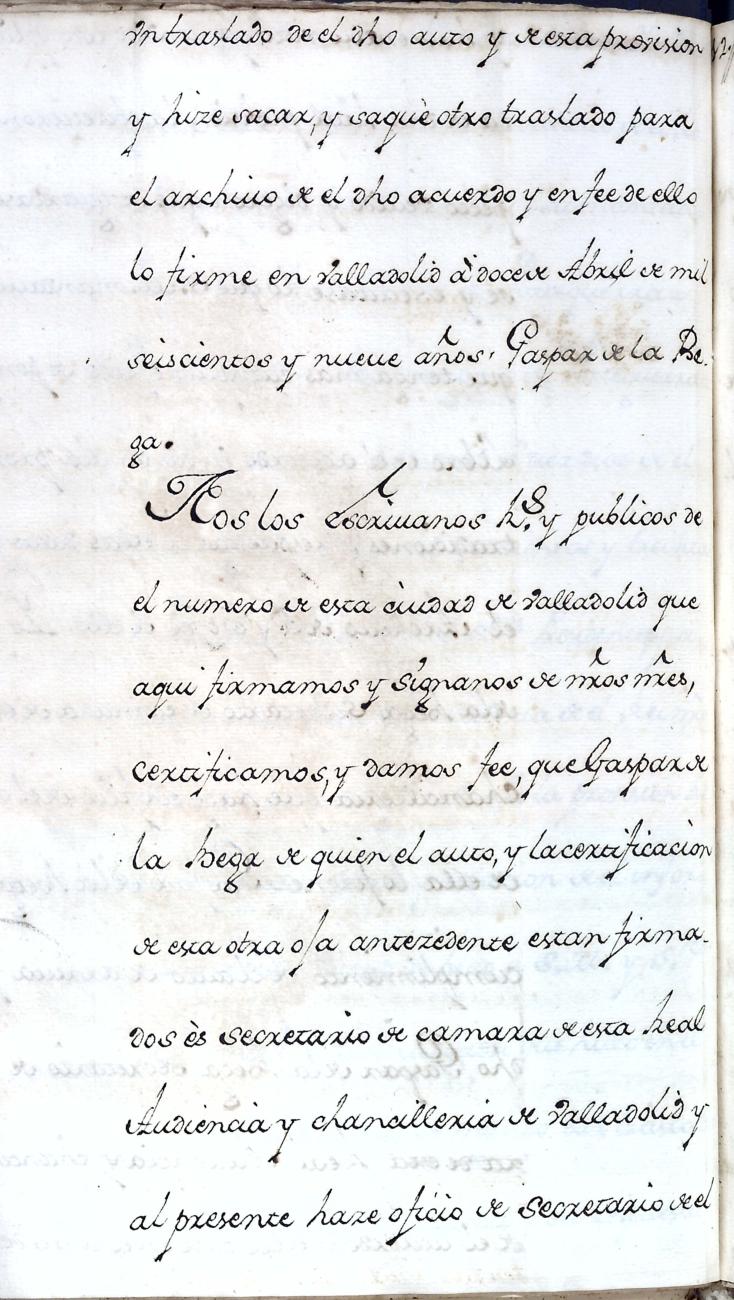 vn traslado de el dho auto y de esta provision
y hize sacar, y saquè otro traslado para
el archiuo de el dho acuerdo y en fee de ello
lo firme en Valladolid à doce de Abril de mil
seiscientos y nueve años. Gaspar de la Be-
ga.
Nos los Escriuanos Rs. y publicos de
el numero de esta ciudad de Valladolid que
aqui firmamos y signanos de nros nres,
certificamos, y damos fee, que Gaspar de
la Bega de quien el auto, y la certificacion
de esta otra oja antezedente estan firma-
dos ès secretario de camara de esta Real
Audiencia y chancilleria de Valladolid y
al presente haze oficio de Secretario de el